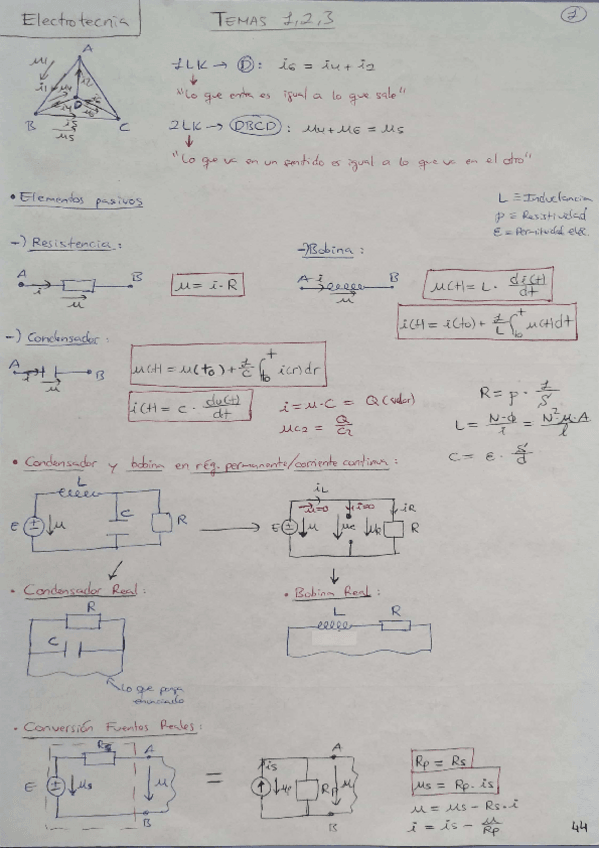 Electrotecnia
TEMAS 1,2,3
1
A
B
C
D
u1
i1
i2
i4
i5
u5
1LK → D: i6 = i4 + i2
"Lo que entra es igual a lo que sale"
2LK → DBCD: u4 + u6 = u5
"Lo que va en un sentido es igual a lo que va en el otro"
• Elementos pasivos
L ≡ Inductancia
ρ ≡ Resistividad
ε ≡ Permitividad eléc.
-) Resistencia:
A i u B
u = i·R
-) Bobina:
A i u B
u(t) = L · di(t)/dt
i(t) = i(to) + 1/L ∫to t u(t)dt
-) Condensador:
A i B
u(t) = u(to) + 1/C ∫to t i(r)dr
i(t) = C · du(t)/dt
i = u·C = Q
uc2 = Q/C2
R = ρ · 1/S
L = N·Φ/i = N²·u·A/l
C = ε · S/d
• Condensador y bobina en rég. permanente/corriente continua:
L
E u C R
iL
u=0 i=0 iR
E u uc uR R
• Condensador Real:
R
C
Lo que ponga enunciado
• Bobina Real:
L R
• Conversión Fuentes Reales:
Rs A
E us u
B
=
is A
Rp u
B
Rp = Rs
us = Rp·is
u = us - Rs·i
i = is - u/Rp
44